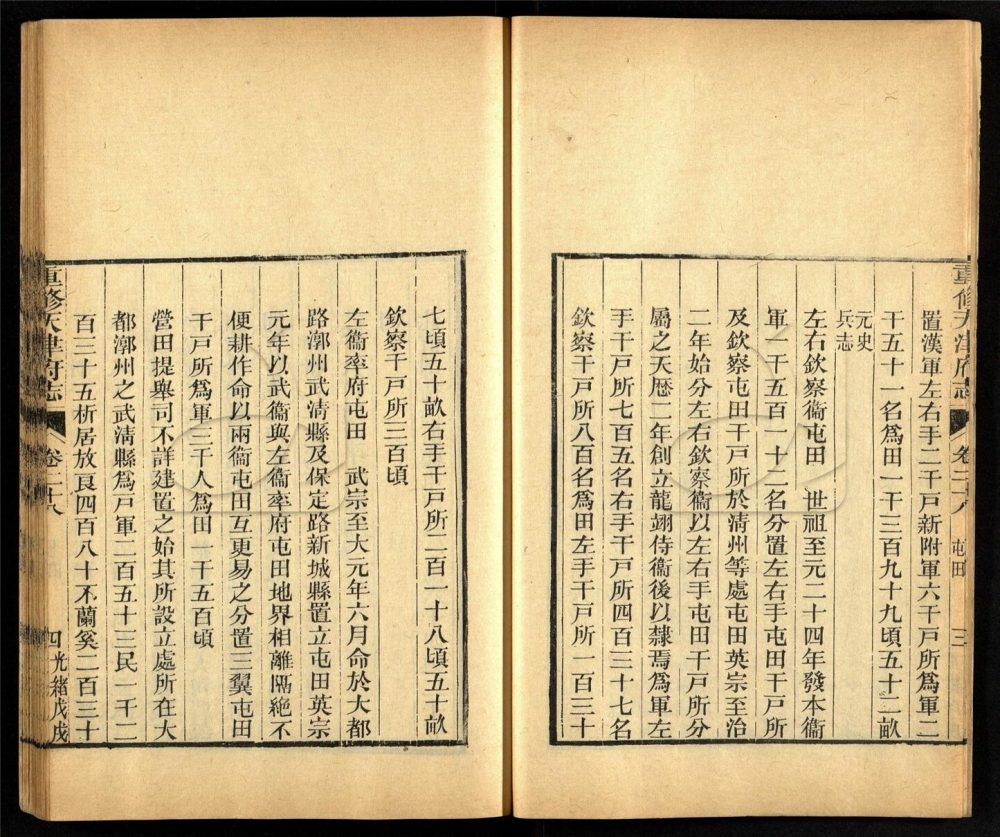 重修天津府志 卷二十八 屯田 三
置漢軍左右手二千戶新附軍六千戶所爲軍二
千五十一名爲田一千三百九十九頃五十二畝
元史
兵志
左右欽察衞屯田 世祖至元二十四年發本衞
軍一千五百一十二名分置左右手屯田千戶所
及欽察屯田千戶所於清州等處屯田英宗至治
二年始分左右欽察衞以左右手屯田千戶所分
屬之天歷二年創立龍翊侍衞後以隸焉爲軍左
手千戶所七百五名右手千戶所四百三十七名
欽察千戶所八百名爲田左手千戶所一百三十
七頃五十畝右手千戶所二百一十八頃五十畝
欽察千戶所三百頃
左衞率府屯田 武宗至大元年六月命於大都
路漷州武清縣及保定路新城縣置立屯田英宗
元年以武衞與左衞率府屯田地界相離隔絕不
便耕作命以兩衞屯田互更易之分置三翼屯田
千戶所爲軍三千人爲田一千五百頃
營田提舉司不詳建置之始其所設立處所在大
都漷州之武清縣爲戶軍二百五十三民一千二
百三十五析居放良四百八十不蘭奚二百三十
重修天津府志 卷二十八 四 光緒戊戌